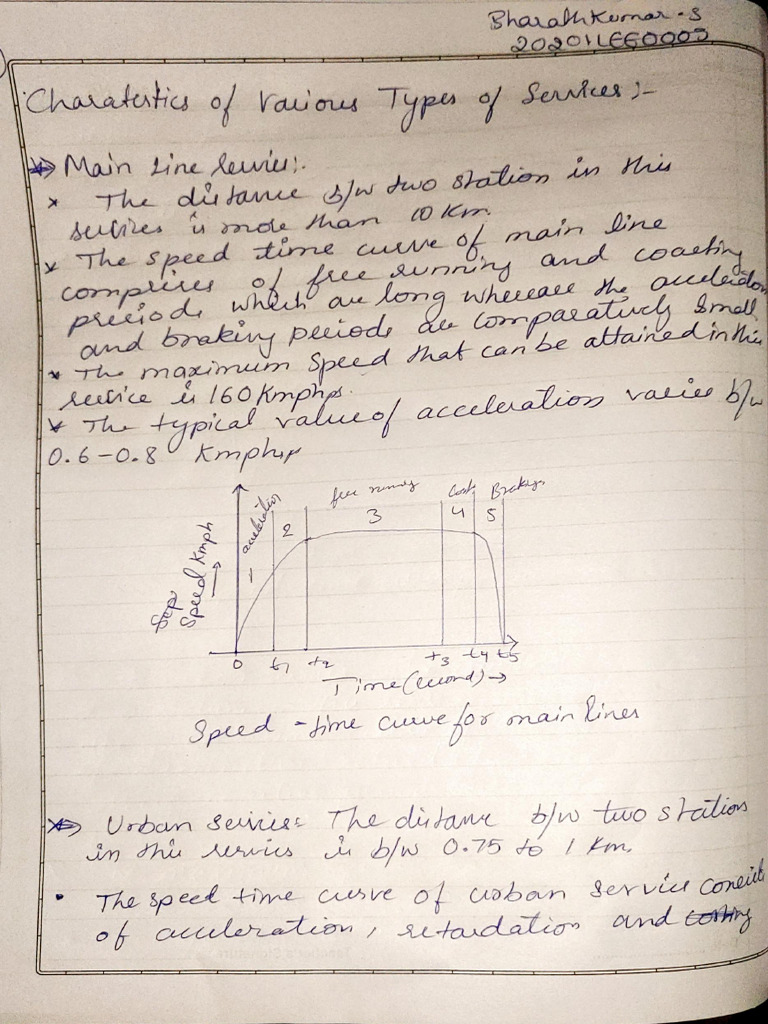 Bharath Kumar-S
20201LEE0005
Charatertics of Various Types of Services :-
Main Line Servies:-
* The distance b/w two station in this
services is more than 10 Km.
* The speed time curve of main line
comprises of free running and coasting
preriods which are long whereare the acceleration
and braking periods are comparatively Small
* The maximum Speed that can be attained in this
service is 160 Kmphps.
* The typical value of acceleration varies b/w
0.6-0.8 Kmphsp
acceleration free running Coast Brakeyn
1 2 3 4 5
Speed Kmph
0 t1 t2 t3 t4 t5
Time (second) →
Speed - time curve for main lines
Urban Services: The distance b/w two stations
in this servies is b/w 0.75 to 1 Km.
• The speed time curve of urban Service consist
of acceleration, retardation and